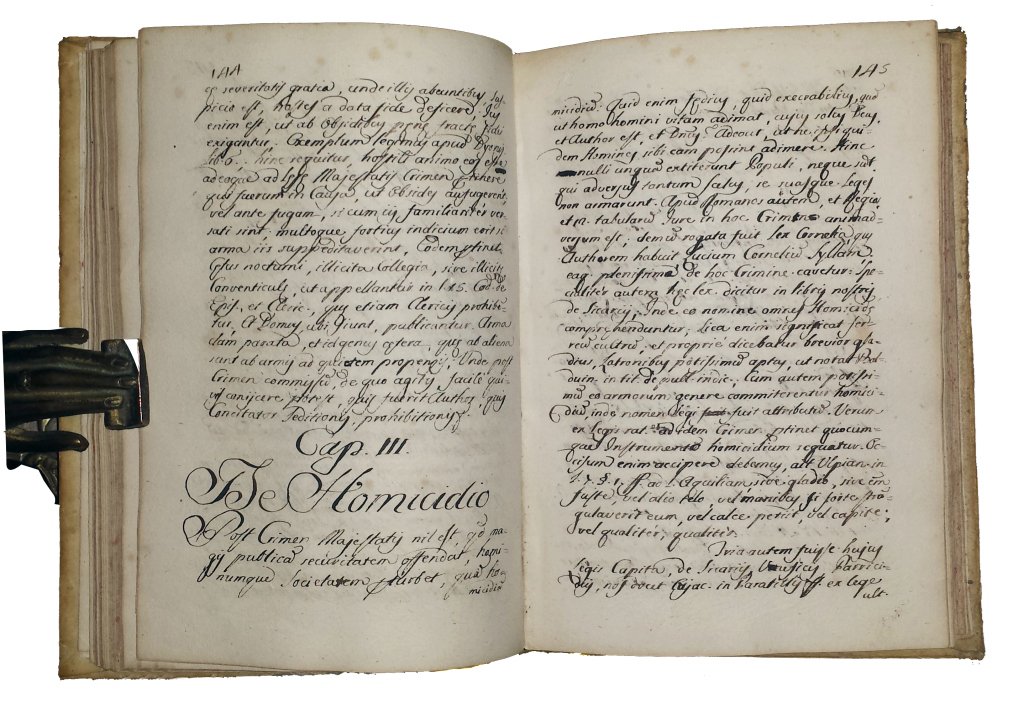 144
es severitatis gratia, unde illis abeuntibus, sus-
picio est, hostes a data fide deficere, Jus
enim est, ut ab Obsidibus fidei
exigantur. Exemplum legimus apud
lib. 6. hinc sequitur, hostili animo eos esse
adeoque ad Majestatis Crimen
qui fuerunt in Causa, ut Obsides aufugerent,
vel ante fugam, si cum iis familiariter ver-
sati sint: multoque fortius indicium erit si
arma iis suppeditaverint, Eodem ptinet
Cetus nocturni, illicita Collegia, sive illicita
Conventicula, ut appellantur in l. 15. Cod. de
Epis. et Cleric. quae etiam Clericis prohibe-
tur, & Domus ubi fiunt, publicantur. Arma
clam parata, et id genus cetera, quae ab aliena
sunt ab armis ad quietem propensis, Unde post
Crimen commissum, de quo agitur facile qui-
vis conijcere potest, quis fuerit Author, quis
Concitator Seditionis, prohibitionis
Cap. III.
De Homicidio
Post Crimen Majestatis nil est, qd ma-
gis publicam securitatem offendat, homi-
numque Societatem turbet, quam ho-
micidium
145
micidium. Quid enim fedius, quid execrabilius, quam
ut homo homini vitam adimat, cujus solus Deus,
et Author est, et Adeout, ut ne ipsi qui-
dem Homines sibi eam possint adimere. Hinc
nulli unquam extiterunt Populi, neque sint
qui adversus tantum facinus, se suasque Leges
non armarunt. Apud Romanos autem, et Regio,
et 12. tabularum Jure in hoc Crimen animad-
versum est; demum rogata fuit lex Cornelia, quae
Authorem habuit Lucium Cornelium Syllam
eaq. plenissime de hoc Crimine cavetur: Spe-
cialiter autem hec lex dicitur in libris nostris
de Sicariis, Inde eo nomine omnes Homicidae
comprehenduntur; Sica enim significat fer-
reum cultrum et proprie dicebatur brevior gla-
dius, Latronibus potissimum aptus, ut notat Bal-
duin. in tit. de publ. indic. Cum autem potissi-
mum eo armorum genere committerentur homici-
dia, inde nomen Legi fuit attributum. Verum
ex legis rat. ad idem Crimen ptinet quocum-
que Instrumento homicidium sequatur. Oc-
cisum enim accipere debemus, ait Ulpian. in
l. 7. §. 1. ff. ad l. Aquiliam sive gladio, sive
fuste, vel alio telo vel manibus, si forte stran-
gulaverit eum, vel calce petiit, vel capite,
vel qualiter, qualiter.
Tria autem fuisse hujus
Legis Capita, de Sicariis Veneficis Parrici-
dis, nos docet Cujac. in Paratitlis ff. ex lege
ult.